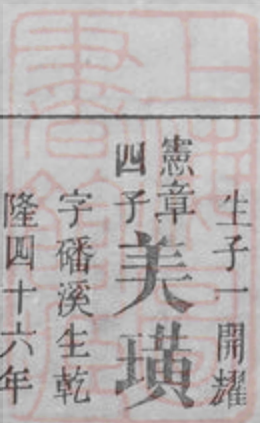 生子一開耀
憲章
四子美璜
字磻溪生乾
隆四十六年